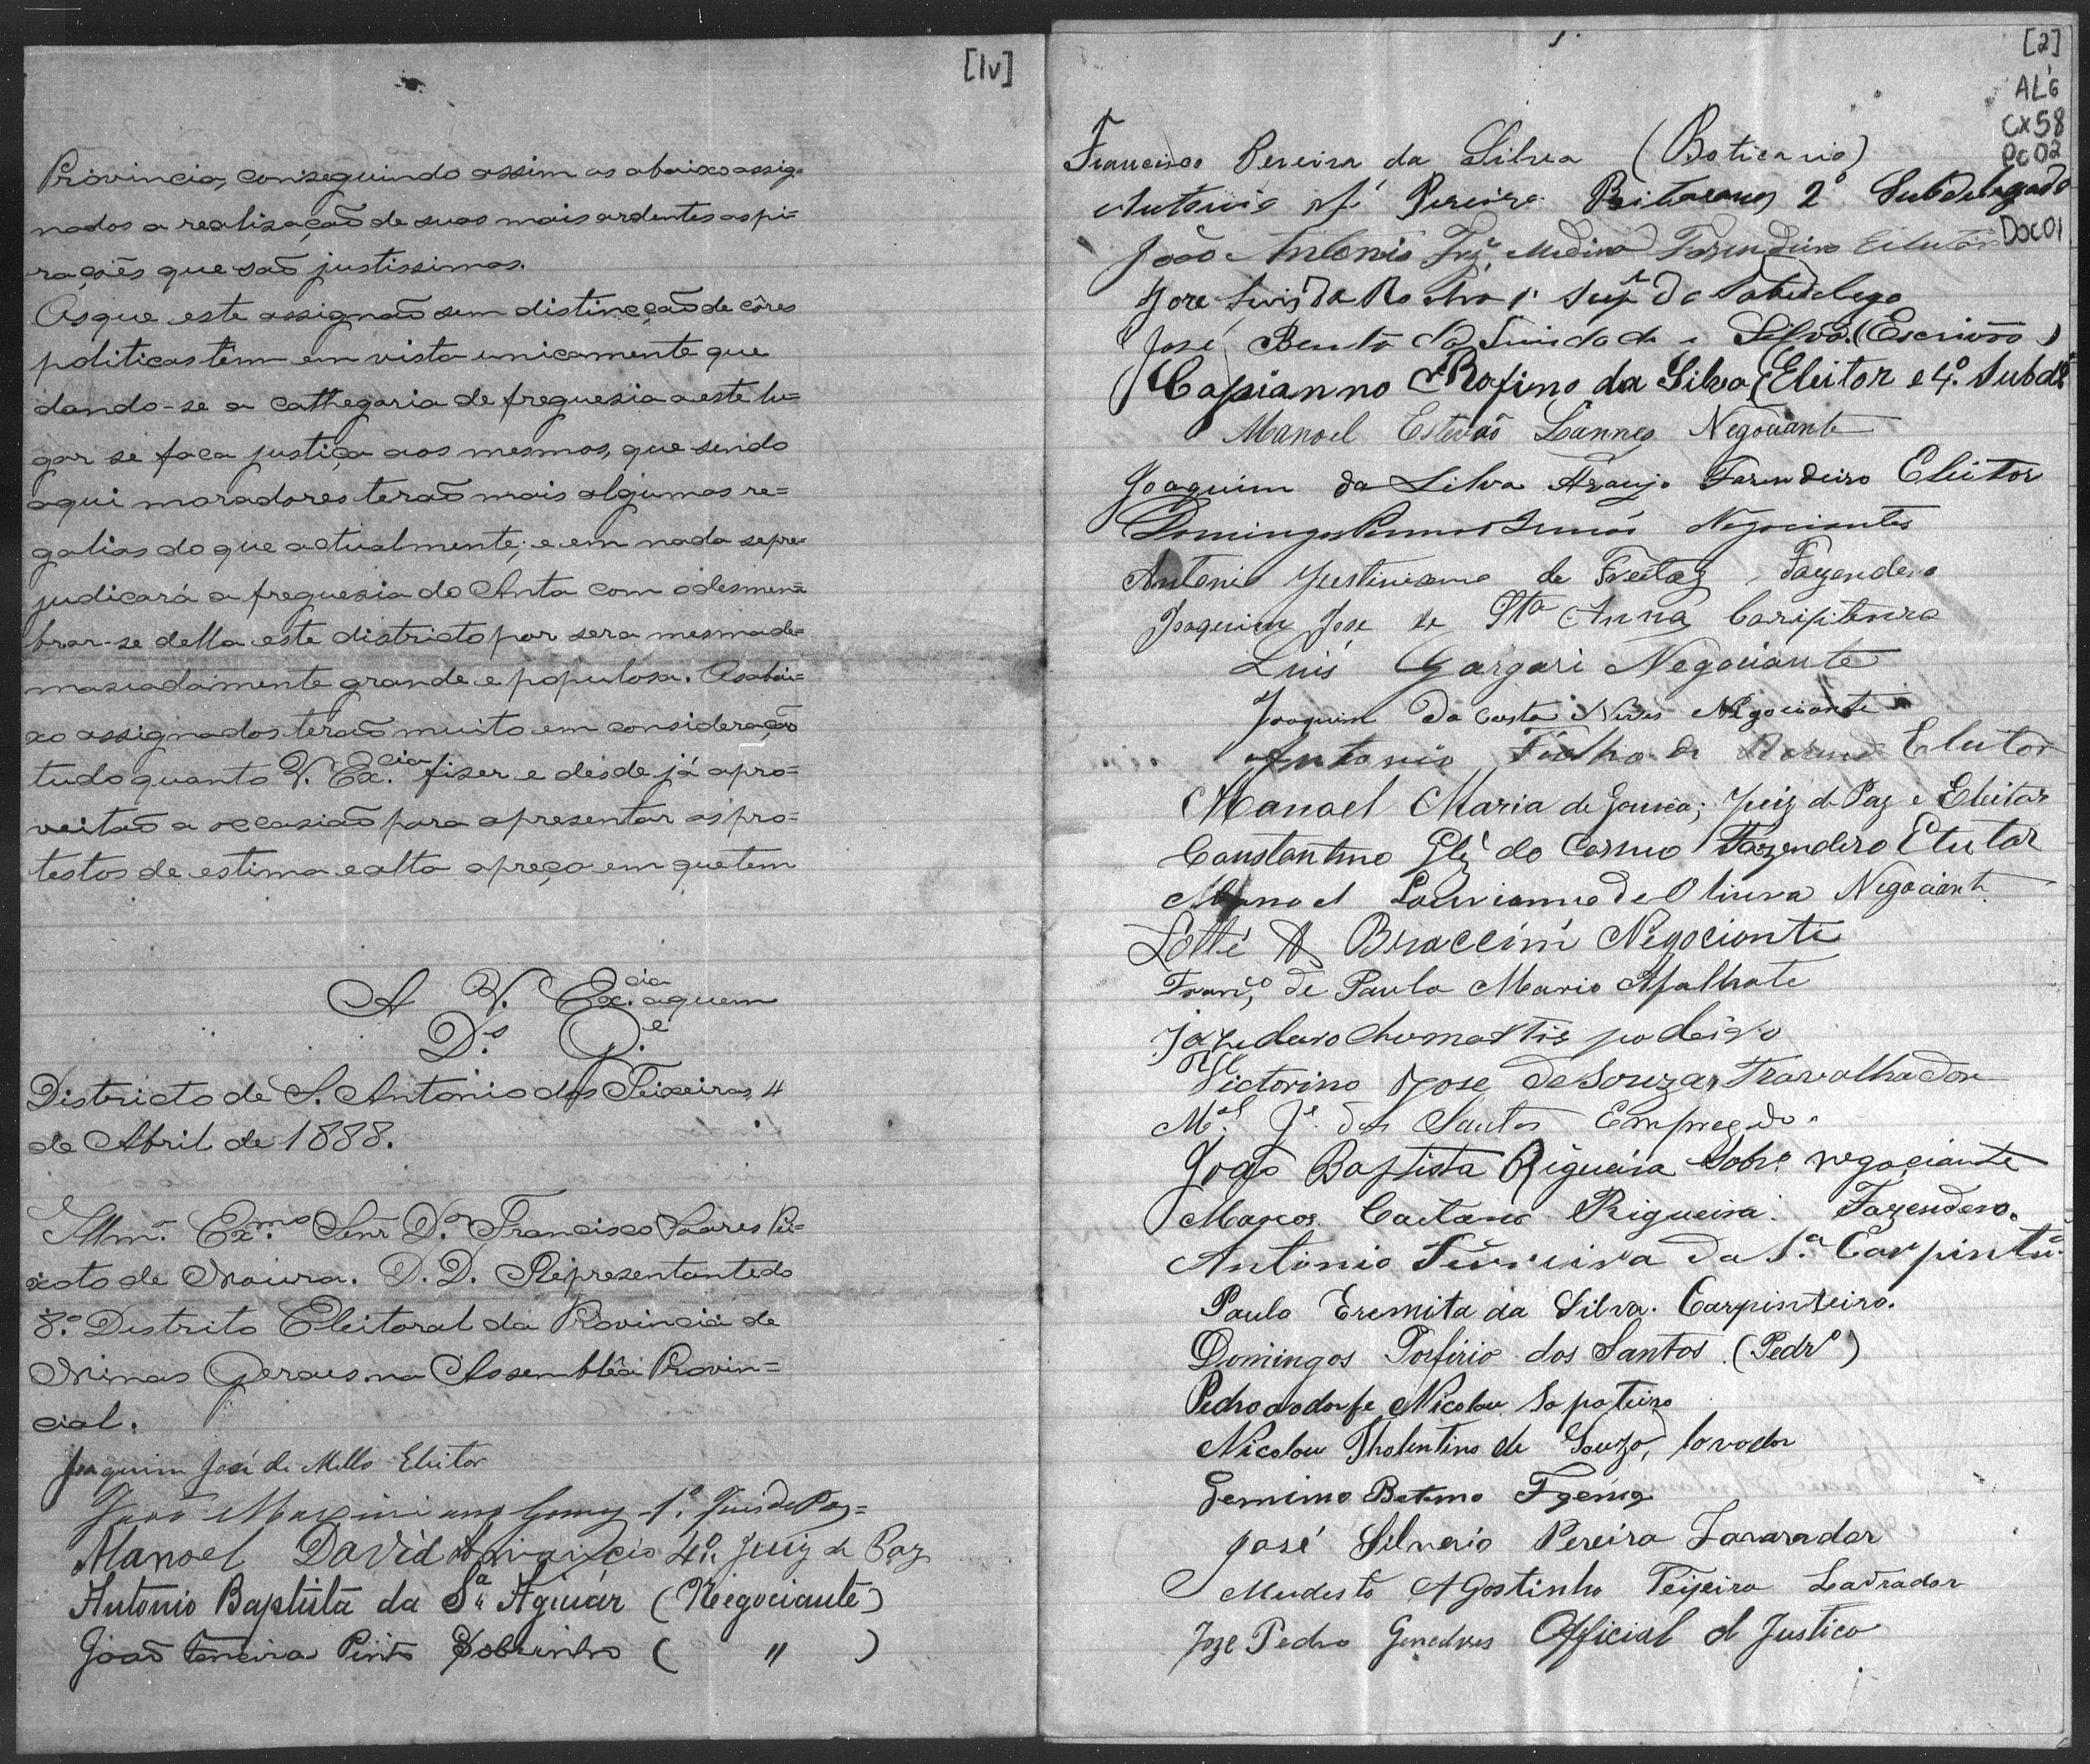 [1v]
Provincia, conseguindo assim os abaixo assig-
nados a realisação de suas mais ardentes aspi-
rações que são justissimas.
Os que este assignaõ sem distincção de côres
politicas têm em vista unicamente que
dando-se a cathegoria de freguesia a este lu-
gar se faca justiça aos mesmos, que sendo
aqui moradores teraõ mais algumas re-
galias do que actualmente; e em nada se pre-
judicará a freguesia do Anta com o desmem-
brar-se della este districto por ser a mesma de-
masiadamente grande e populosa. Os abai-
xo assignados teraõ muito em consideração
tudo quanto V. Ex.cia fizer e desde já apro-
veitaõ a occasiaõ para apresentar os pro-
testos de estima e alto apreço em que tem
A V. Ex.cia a quem
D.s G.e
Districto de S. Antonio dos Teixeiras, 4
de Abril de 1888.
Illm.o Ex.mo Senr D.or Francisco Soares Pei-
xoto de Moura. D. D. Representante do
8.o Destrito Eleitoral da Provincia de
Minas Geraes na Assemblêa Provin-
cial.
Joaquim José de Mello Eleitor
João Maximiano Gomes 1.o Juis de Paz
Manoel David 4.o Juiz de Paz
Antonio Baptista da S.a Aguiár (Negociante)
João Ferreira Pinto Sobrinho ( " )
[2]
AL6
CX58
PC02
DOC01
Francisco Pereira da Silva (Boticario)
Antonio Pereira 2.o Subdelegado
João Antonio Fazendeiro Eleitor
Jose Luis da Rocha 1.o Sup.e do Subdelega
José Bento da Trindade e Silva (Escrivão)
Rofino da Silva (Eleitor e 4.o Subd.
Manoel Estevaõ Lannes Negociante
Joaquim da Silva Araujo Fazendeiro Eleitor
Domingos Irmãos Negociantes
Antonio Justiniano de Freitas, Fazendero
Joaquim Jose de Sta Anna Caripitenro
Luis Gargari Negociante
Joaquim da Costa Neves Negociante
Antonio Fialho de Eleitor
Manoel Maria de Gouvea; Juiz de Paz e Eleitor
Constantino Glz do Carmo Fazendero Eleitor
Manoel de Olivra Negociante
Braccini Negociante
Franc.o de Paula Mario Alfalhate
padeiro
Victorino Jose de Souza, Travalhador
M.el J.e dos Santos Empregado
João Baptista Rigueira Sobr.o negociante
Marcos Caetano Rigueira. Fazendero.
Antonio Ferreira da S.a Carpintei.o
Paulo Eremita da Silva. Carpinteiro.
Domingos Porfirio dos Santos (Pedr.o)
Pedro Nicolau Sapateiro
Nicolau Tholentino de Souza, lavador
José Silverio Pereira Lavarador
Modesto Agostinho Teixeira Lavrador
Joze Pedro Official de Justica